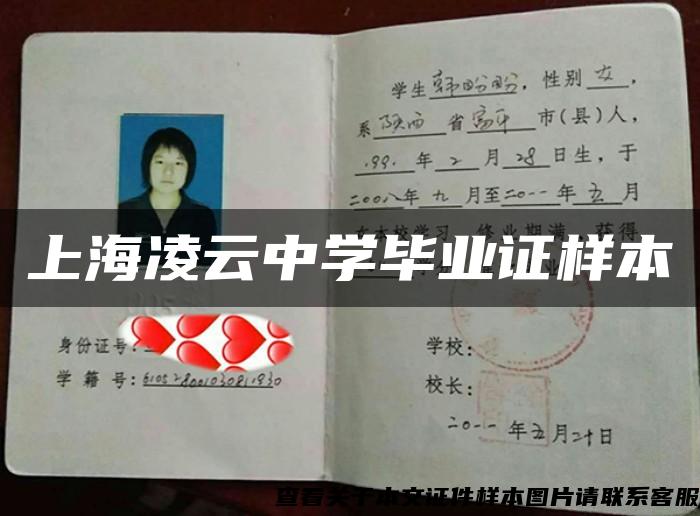 学生韩盼盼，性别女，
系陕西省富平市(县)人，
1991年2月28日生，于
二00八年九月至二0一一年五月
在本校学习，修业期满，获得
上海凌云中学毕业证样本
身份证号：
学籍号：610528001030811930
学校：
校长：
二0一一年五月二十日
查看关于本文证件样本图片请联系客服